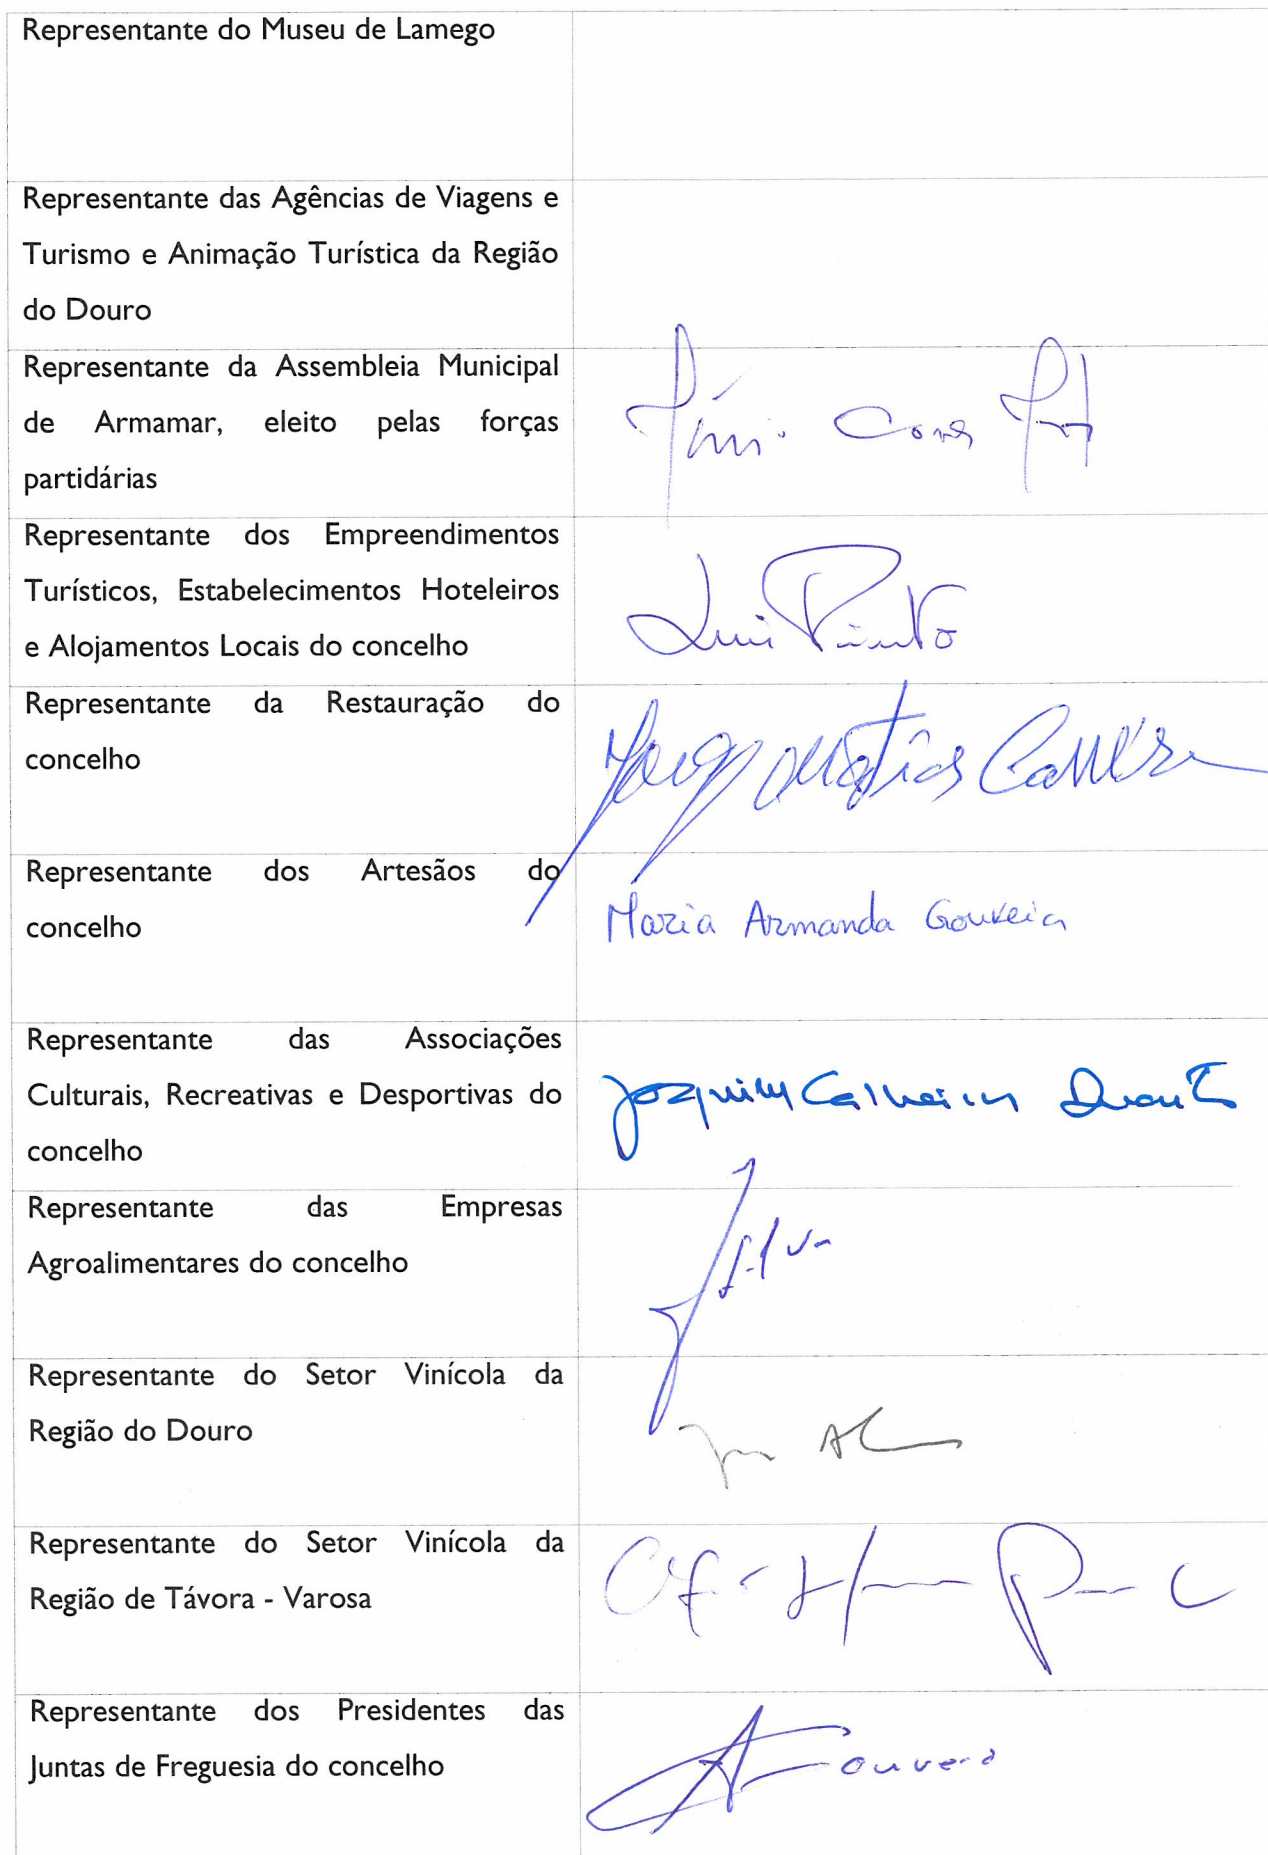 Representante do Museu de Lamego
Representante das Agências de Viagens e
Turismo e Animação Turística da Região
do Douro
Representante da Assembleia Municipal
de Armamar, eleito pelas forças
partidárias
Representante dos Empreendimentos
Turísticos, Estabelecimentos Hoteleiros
e Alojamentos Locais do concelho
Luis Pinto
Representante da Restauração do
concelho
Matias
Representante dos Artesãos do
concelho
Maria Armanda Gouveia
Representante das Associações
Culturais, Recreativas e Desportivas do
concelho
Joaquim Duarte
Representante das Empresas
Agroalimentares do concelho
Silva
Representante do Setor Vinícola da
Região do Douro
Representante do Setor Vinícola da
Região de Távora - Varosa
Representante dos Presidentes das
Juntas de Freguesia do concelho